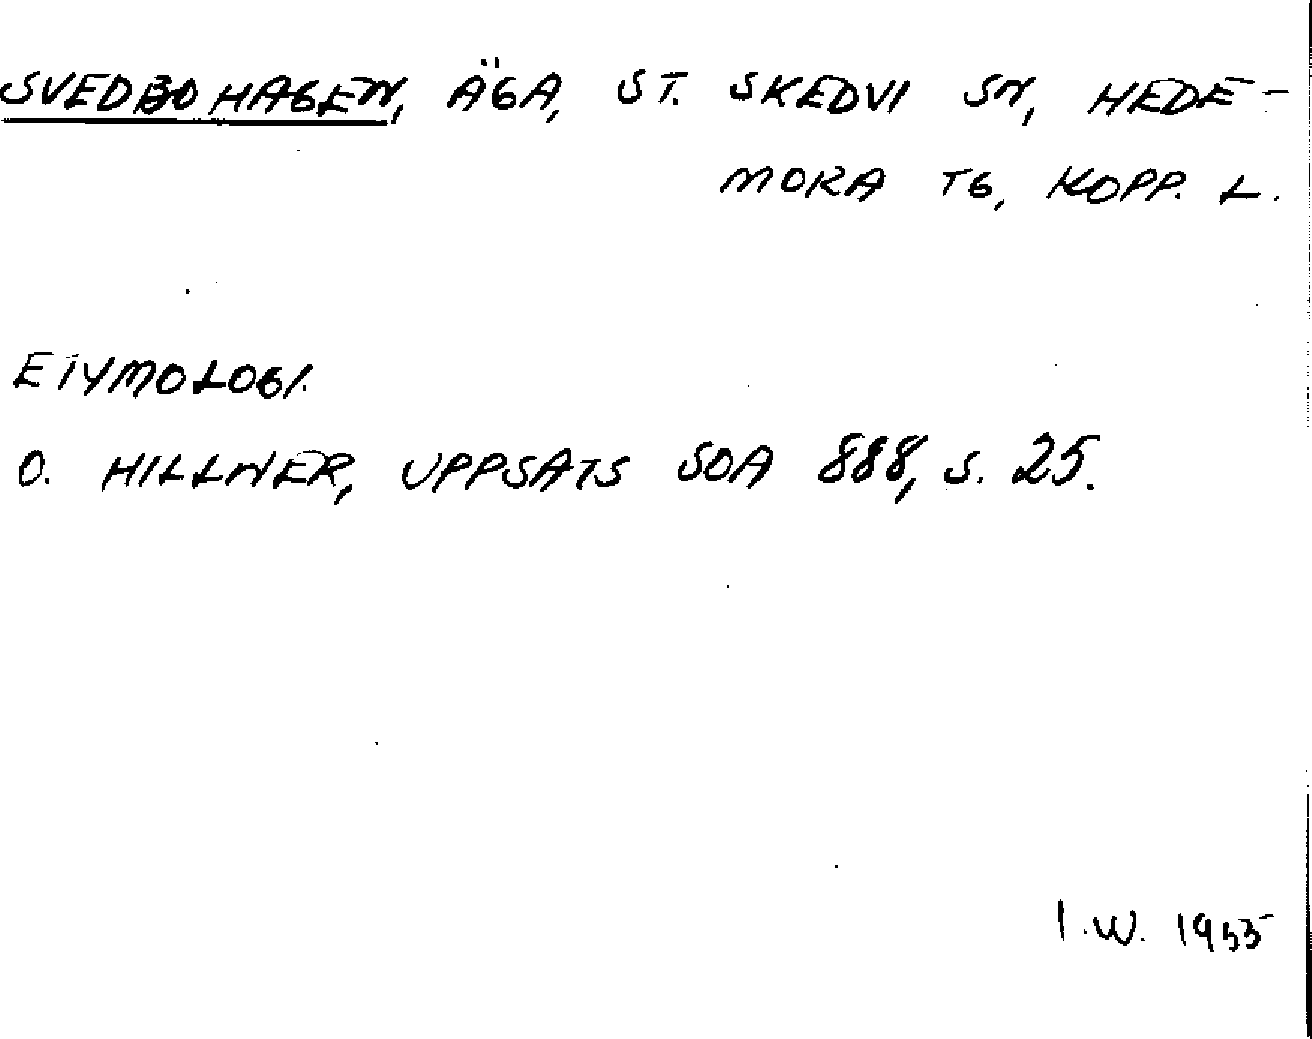 SVEDBOHAGEN, ÄGA, ST. SKEDVI SN, HEDE-
MORA TG, KOPP. L.
ETYMOLOGI.
O. HILLNER, UPPSATS SOA 888, S. 25.
I.W. 1955